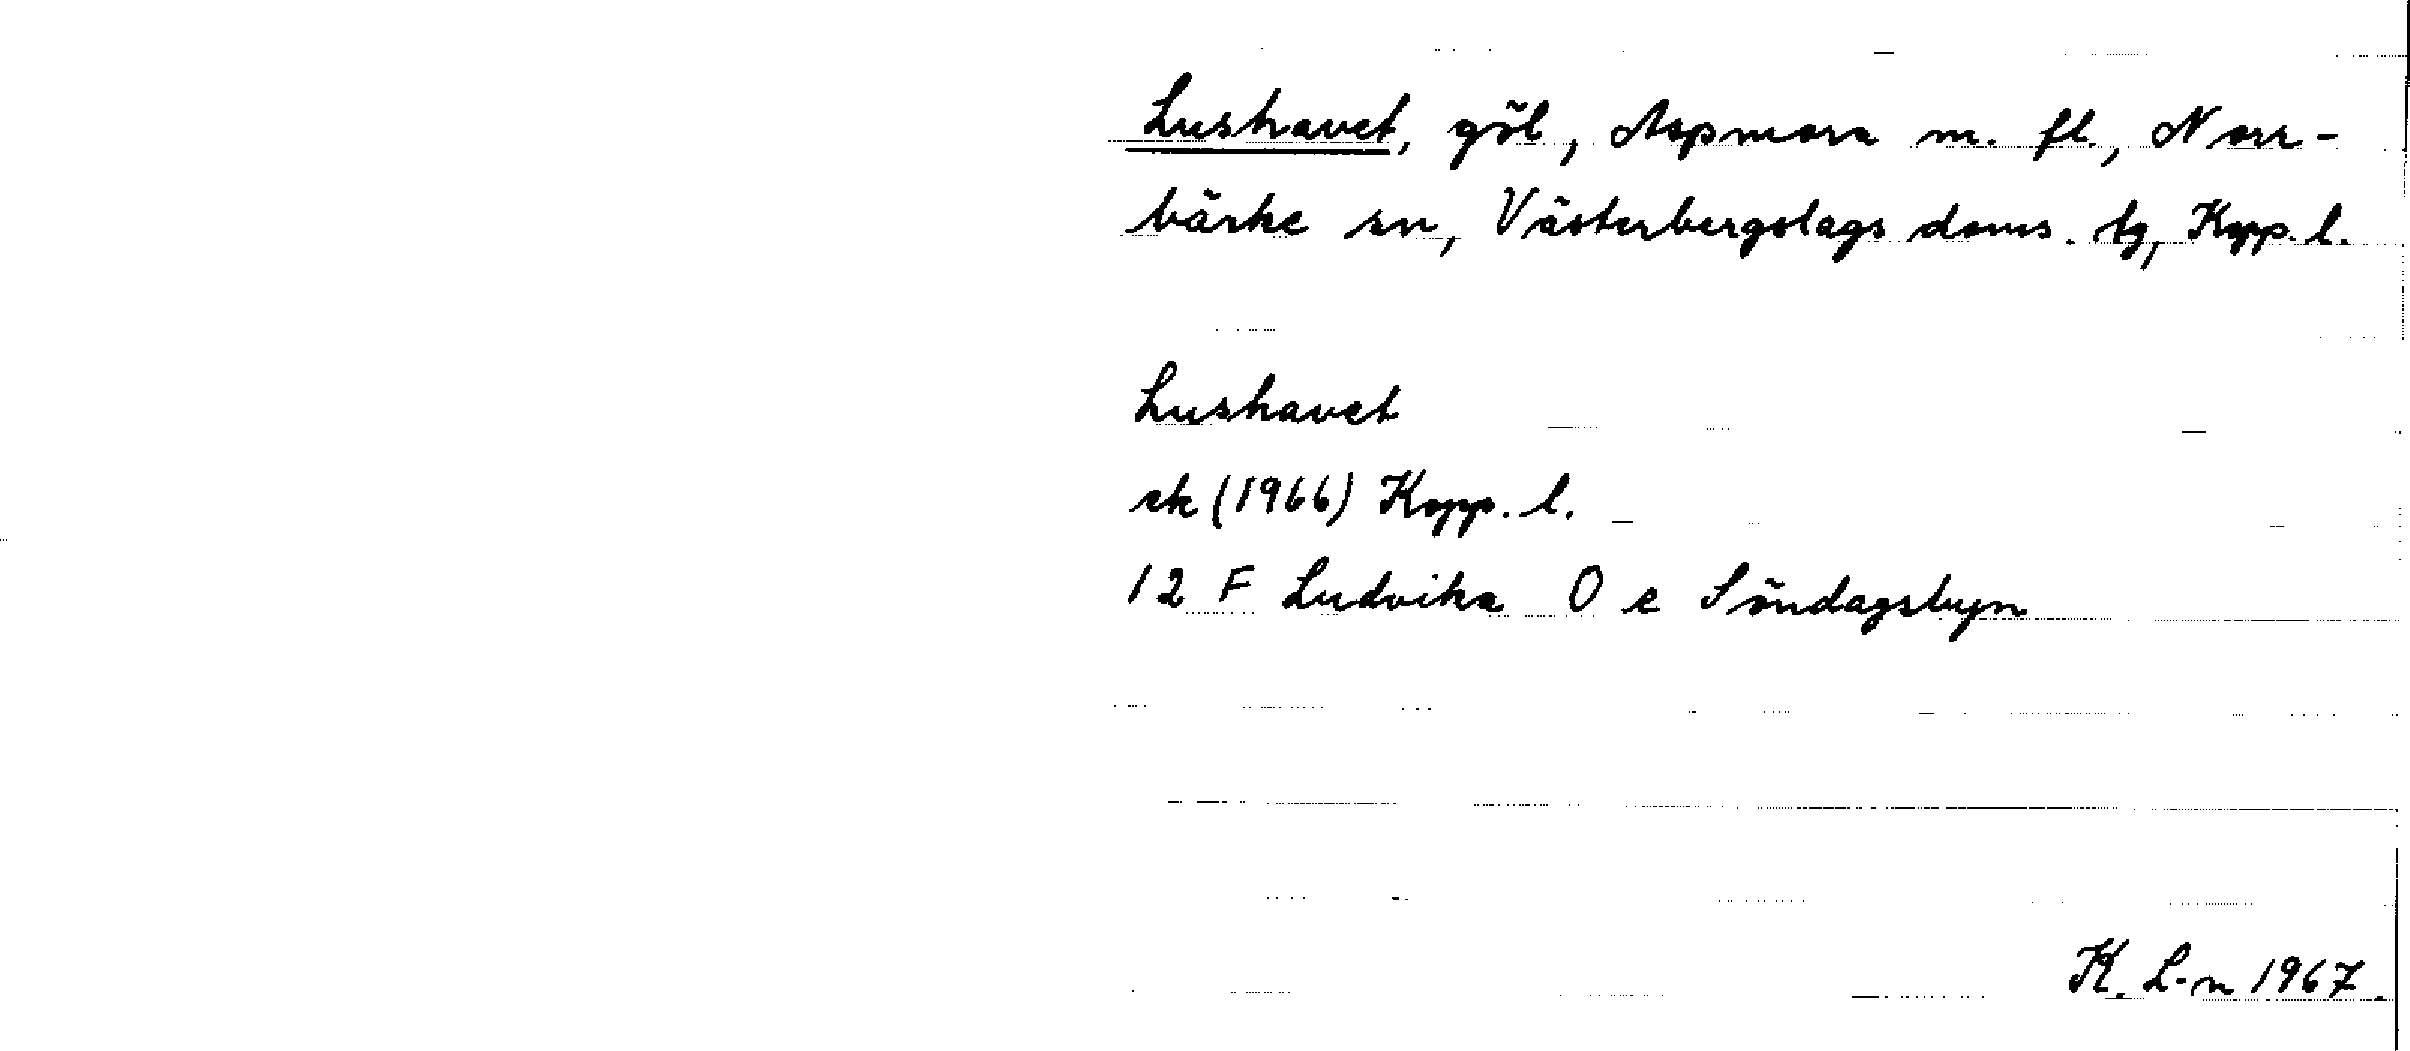 Lushavet, göl, Aspmora m. fl., Norr-
bärke sn, Västerbergslags doms. tg, Kopp. l.
Lushavet
ek (1966) Kopp. l.
12 F Ludvika O e Söndagsbyn
K. L-n 1967.